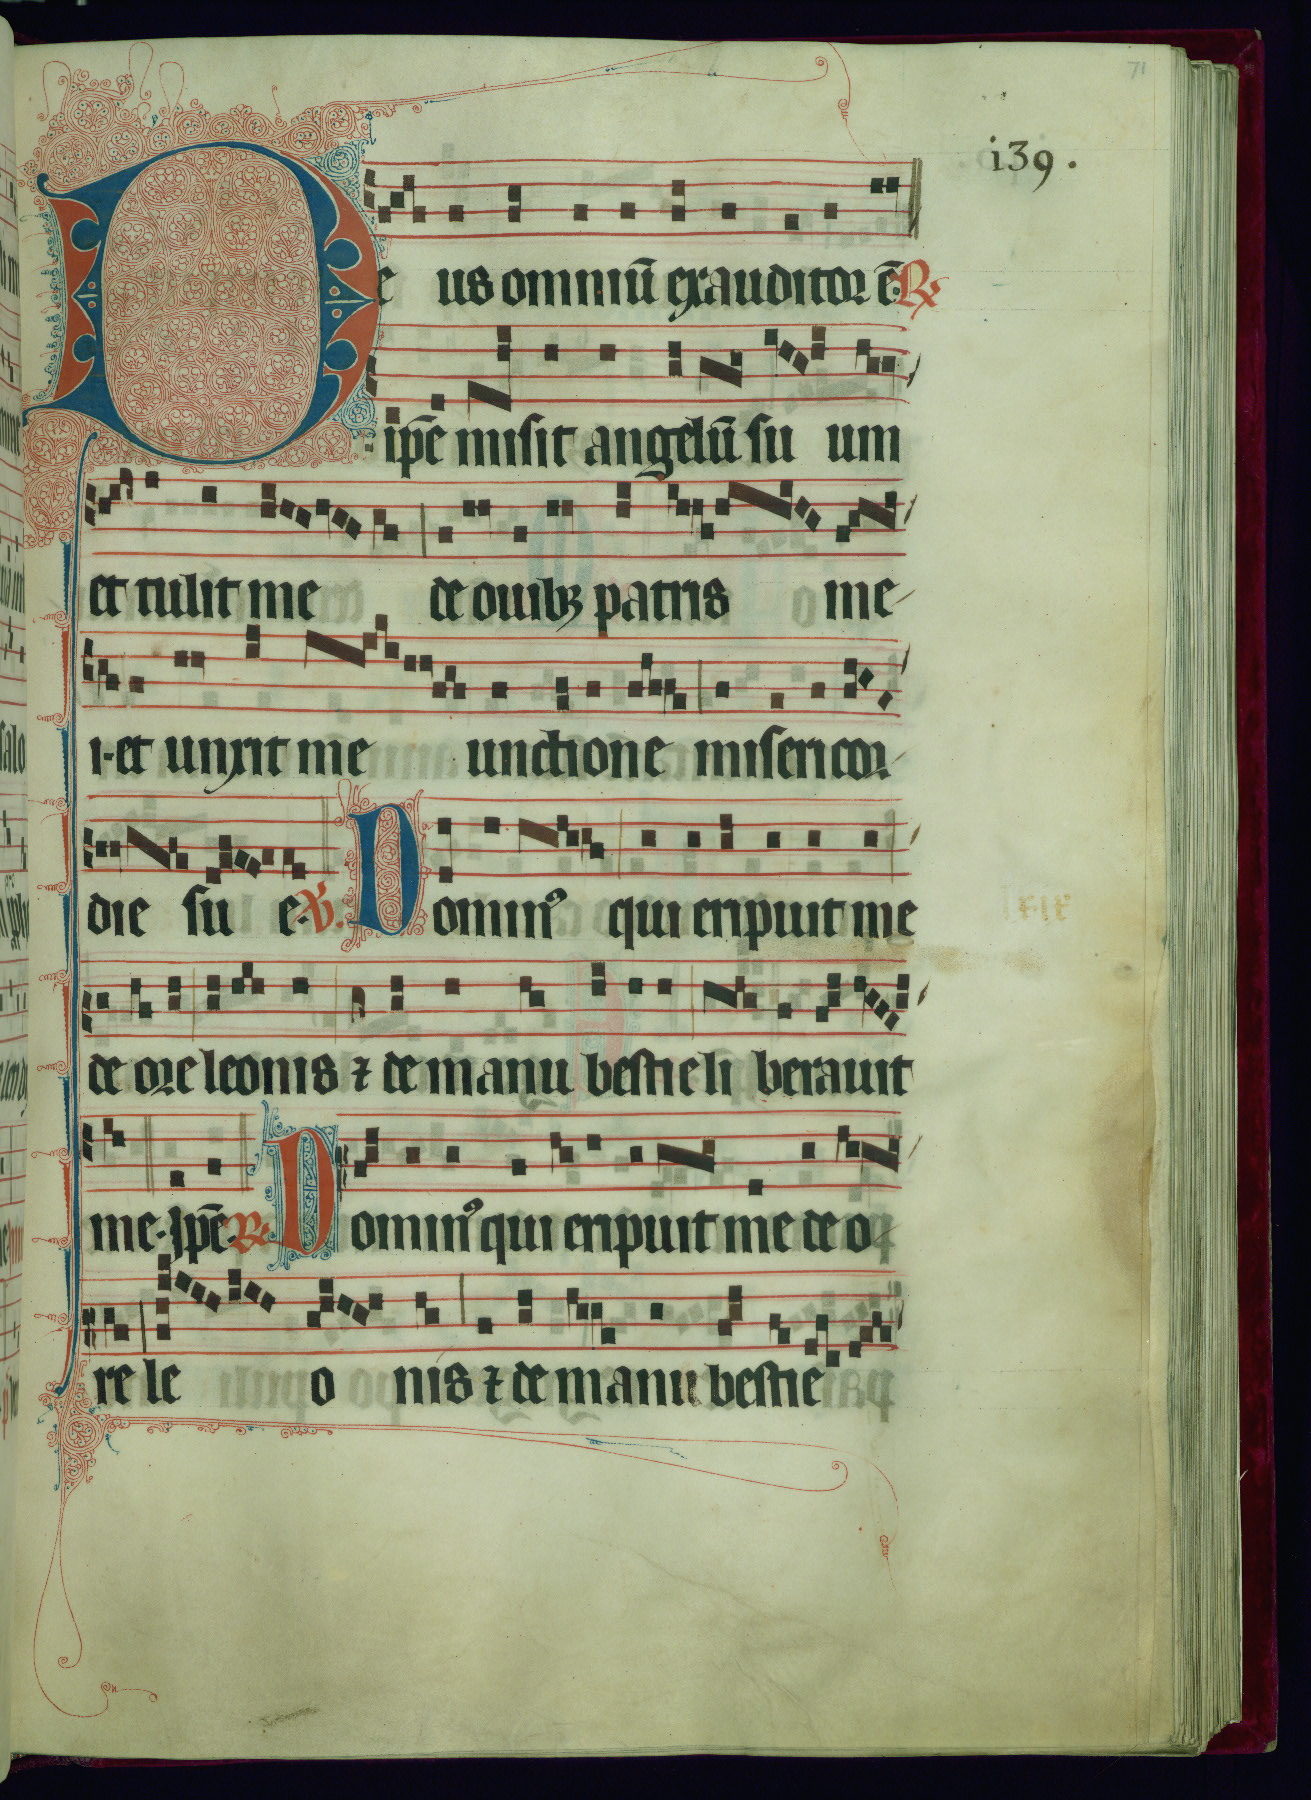 71
139.
De us omniū exauditor ē. ℟
ipē misit angelū su um
et tulit me de ouibꝫ patris me
i. et unxit me unctione misericor
die su e. ℣. Dominꝰ qui eripuit me
de ore leonis ⁊ de manu bestie li berauit
me. ipē ℟ Dominꝰ qui eripuit me de o
re le o nis ⁊ de manu bestie